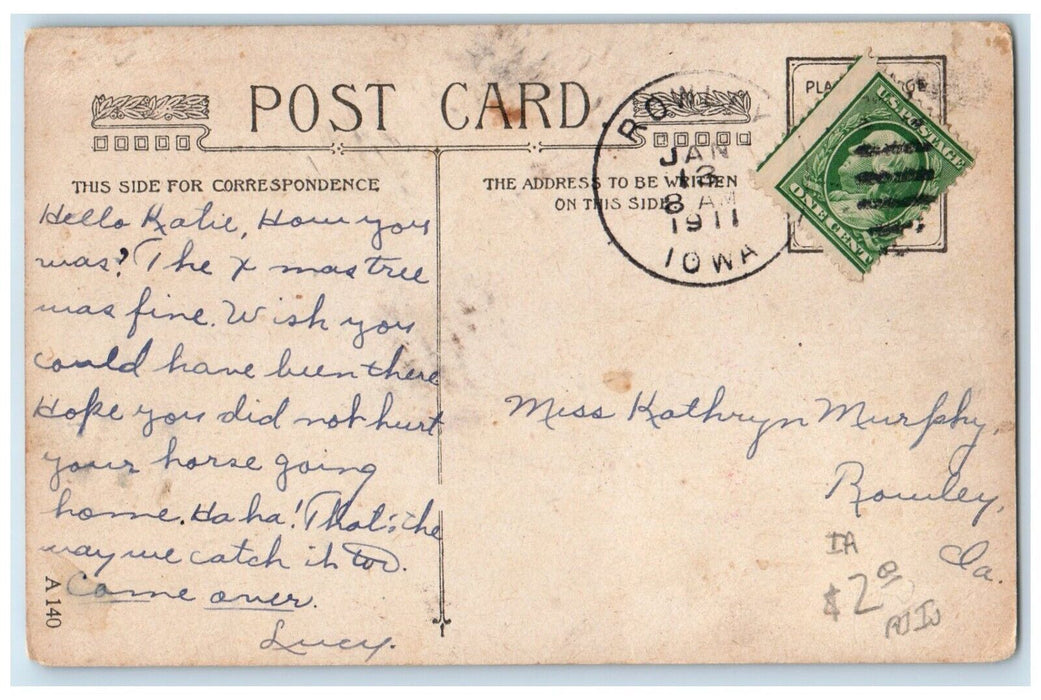 POST CARD
THIS SIDE FOR CORRESPONDENCE
THE ADDRESS TO BE WRITTEN
ON THIS SIDE
JAN
13
8 AM
1911
IOWA
U.S. POSTAGE
ONE CENT
Hello Katie, How you
was? The X mas tree
was fine. Wish you
could have been there
Hope you did not hurt
your horse going
home. Ha ha! That's the
way we catch it too.
Come over.
Lucy.
A 140
Miss Kathryn Murphy,
Rowley,
Ia.
IA
$2.00